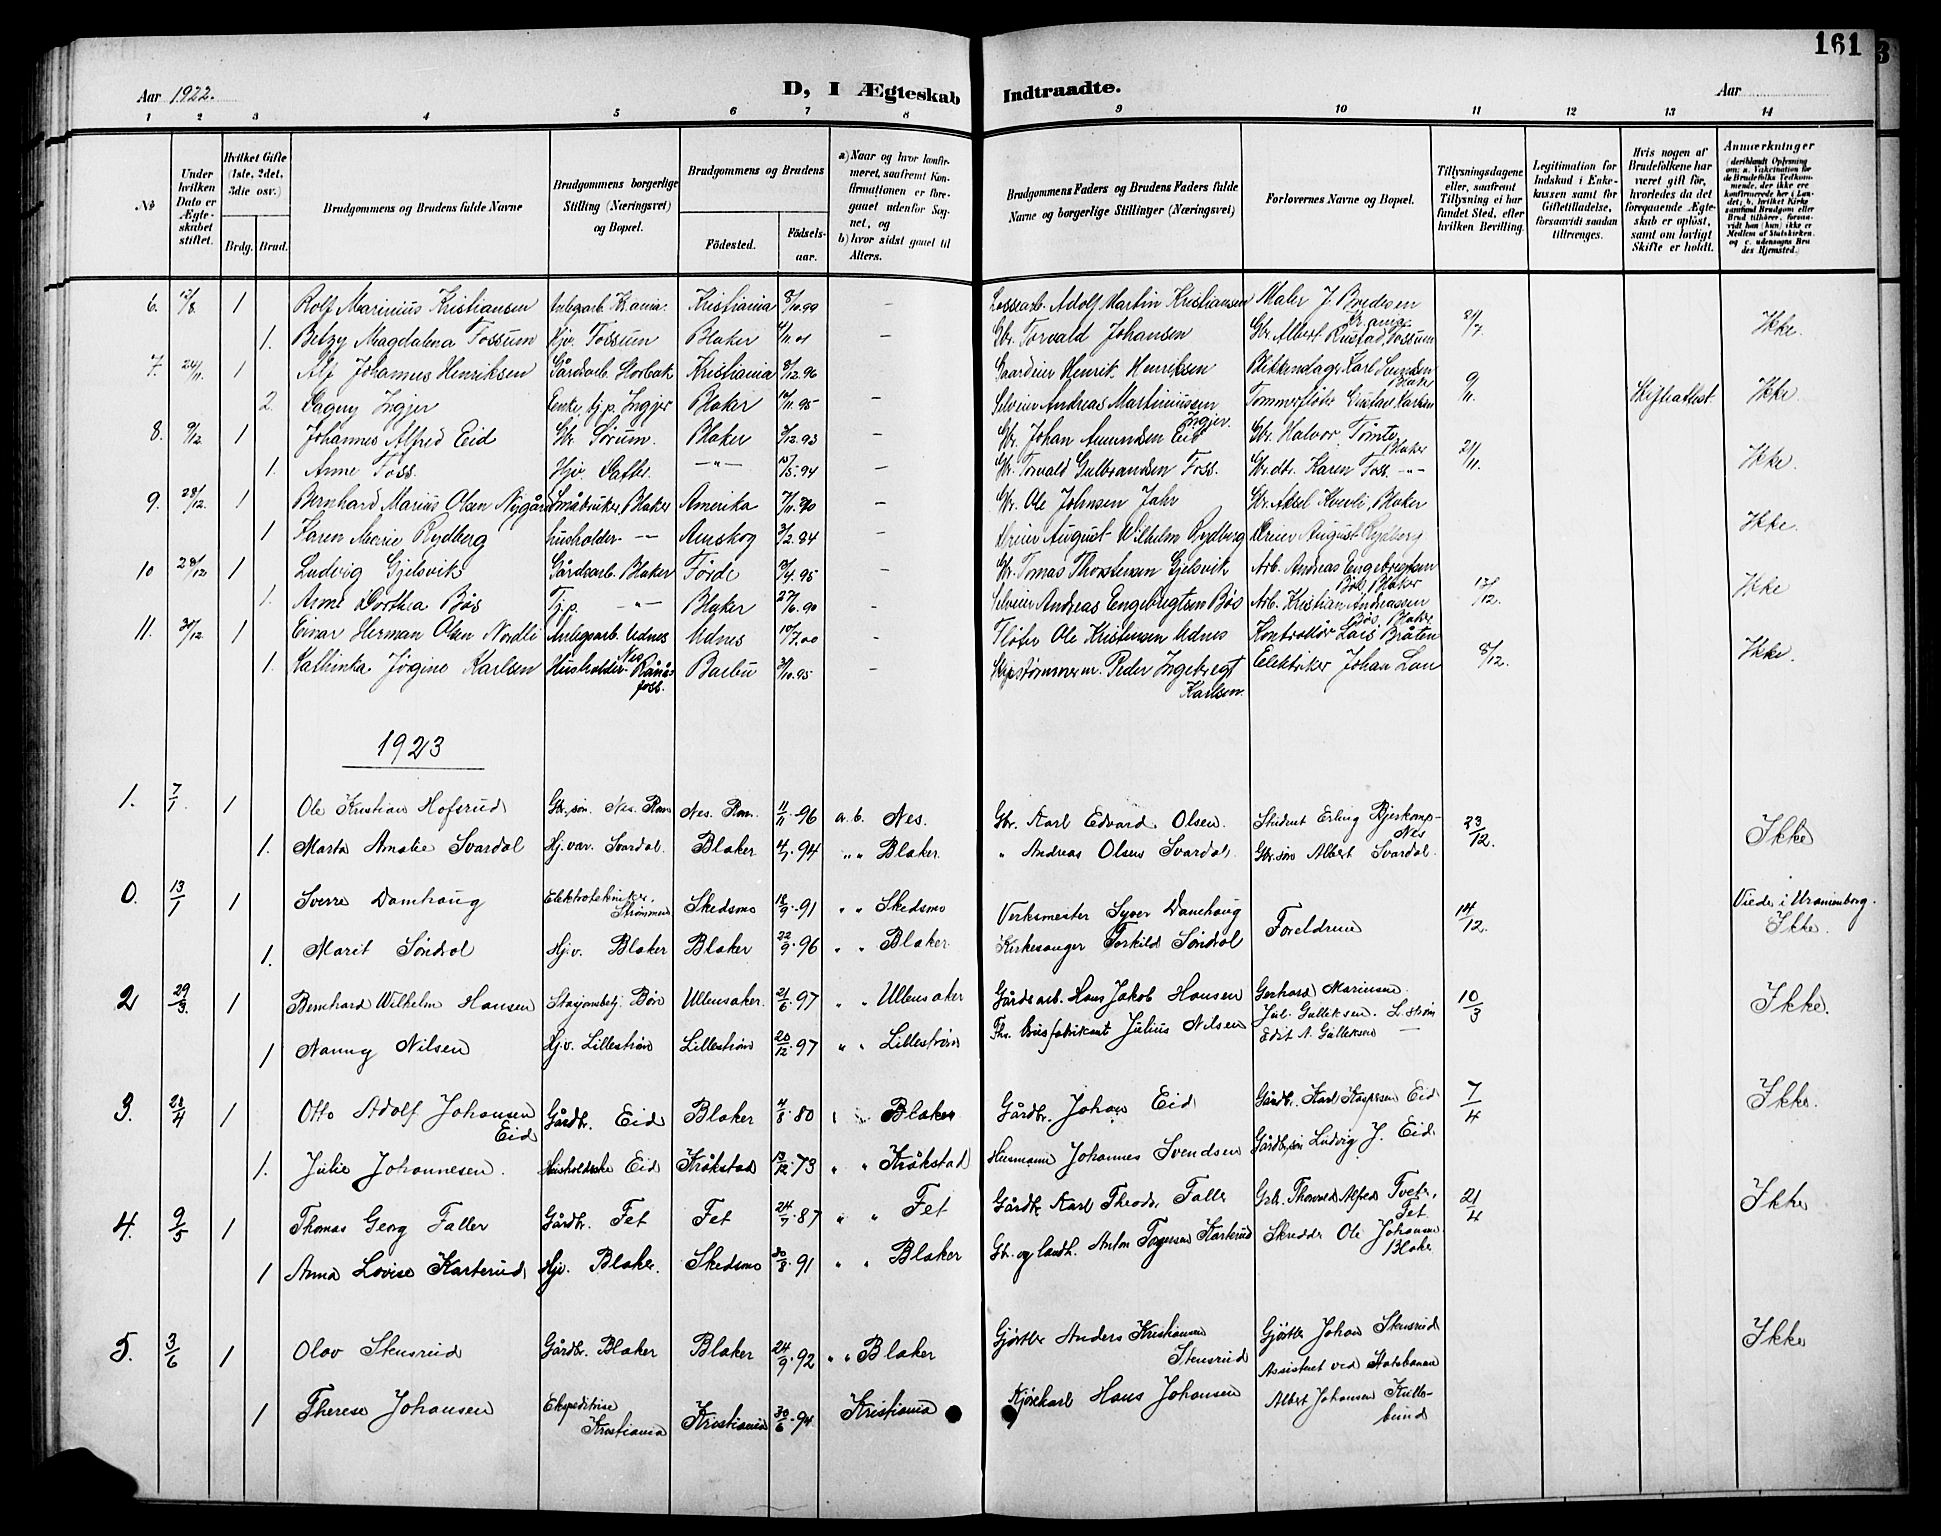 161
Aar 1922. D, I Ægteskab Indtraadte. Aar
1 2 3 4 5 6 7 8 9 10 11 12 13 14
№
Under hvilken Dato er Ægteskabet stiftet.
Hvilket Gifte (1ste, 2det, 3die osv.)
Brdg. Brud.
Brudgommens og Brudens fulde Navne
Brudgommens borgerlige Stilling (Næringsvei) og Bopæl.
Brudgommens og Brudens
Födested. Födsels-aar.
a) Naar og hvor konfirmeret, saafremt Konfirmationen er foregaaet udenfor Sognet, og
b) hvor sidst gaaet til Alters.
Brudgommens Faders og Brudens Faders fulde Navne og borgerlige Stillinger (Næringsvei)
Forlovernes Navne og Bopæl.
Tillysningsdagene eller, saafremt Tillysning ei har fundet Sted, efter hvilken Bevilling.
Legitimation for Indskud i Enkekassen samt for Giftetilladelse, forsaavidt saadan tiltrænges.
Hvis nogen af Brudefolkene har været gift för, hvorledes da det foregaaende Ægteskab er oplöst, samt om lovligt Skifte er holdt.
Anmærkninger
6. 12/8 1 Rolf Marinius Kristiansen Anlegsarb. Krania. Kristiania 8/10.99 — Lossearb. Adolf Martin Kristiansen Maler J. Bredesen Krania 24/7
1. Betzy Magdalena Fossum Hjv. Fossum Blaker 4/11 01 — Gbr. Torvald Johansen Gbr. Albert Rustad, Fossum Ikke.
7. 24/11. 1 Alf Johannes Henriksen Gårdsarb. Horbak Kristiania 8/12.96 Gaardeier Henrik Henriksen Karl Svendsen Blaker 9/11.
2. Dagny Ingjer Enke, tj.p. Ingjer Blaker 11.95 — Selveier Andreas Martinussen Ingjer. Tømmerfløter Gustav Karlsen Skifteattest. Ikke
8. 9/12 1 Johannes Alfred Eid Gbr. Sørum. Blaker 3/12.93 Gbr. Johan Amundsen Eid Gbr. Halvor Tømte, Blaker 21/11.
1. Anne Foss. Hjv. —"— 15/5.94 — Gbr. Torvald Gulbrandsen Foss. Gbr.dtr. Karen Foss —"— Ikke.
9. 28/12 1 Bernhard Marius Olsen Nygård Småbruker, Blaker Amerika 7/11.90 — Gbr. Ole Johnsen Jahr Gbr. Aksel Kvevli, Blaker
1 Karen Marie Rydberg husholder. —"— Aurskog 3/2.84 Dreier August Wilhelm Rydberg Dreier August Rydberg Ikke.
10 28/12 1 Ludvig Gjelsvik Gårdsarb. Blaker Förde 4.95 Gbr. Tomas Thorstensen Gjelsvik Arb. Andreas Engebregtsen Bös, Blaker 12/12.
1. Anne Dorthea Bös Tj.p. —"— Blaker 27/6.90 — Selveier Andreas Engebregtsen Bös Arb. Kristian Andreassen Bös, Blaker Ikke
11. 30/12 1 Einar Herman Olsen Nordli Anlegsarb. Udnes Nes Udnes 10/7.00 Fløter Ole Kristensen Udnes Kontrollör Lars Bråten 8/12.
1. Kathinka Jörgine Karlsen Husholder. Rånås-foss. Barbu 31/10.95 — Skipstömmerm. Peder Ingebregt Karlsen. Elektriker Johan Lan Ikke.
1923
1. 7/1. 1 Ole Kristian Hofsrud Gbr.søn Nes. Rom. Nes. Rom. 11/11.96 a.b. Nes. Gbr. Karl Edvard Olsen. Student Erling Bjerkamp- Nes 23/12.
1. Marta Amalie Svardal Hj.var. Svardal. Blaker 4/7.94 " " Blaker. " Andreas Olsen Svardal. Gbr.søn Albert Svardal. Ikke
0. 13/1 1 Sverre Damhaug Elektrotekniker, Strømmen Skedsmo 18/9.91 " " Skedsmo Verksmester Syver Damhaug Foreldrene 14/12. Viede i Uranienborg. Ikke.
1. Marit Söndrol Hj.v. Blaker Blaker 22/9.96 " " Blaker. Kirkesanger Torkild Söndrol
2 29/3. 1 Bernhard Wilhelm Hansen Stasjonsbetj. Bön Ullensaker. 21/6.97 " " Ullensaker Gårdsarb. Hans Jakob Hansen Gerhard Marinsen. Jul. Gulleksen. L.strøm 10/3 Ikke.
1 Nanny Nilsen Hj.v. Lillestrøm Lillestrøm 20/12.97 " " Lillestrøm Fhv. Brusfabrikant Julius Nilsen Edit A. Gulleksen —
3. 28/4 1 Otto Adolf Johansen Eid Gårdbr. Eid Blaker 4/8.80 " " Blaker Gårdbr. Johan Eid Gårdbr. Karl Kaspersen Eid 7/4 Ikke.
1. Julie Johannesen. Husholderske Eid Kråkstad 13/12.73 " " Kråkstad Husmann Johannes Svendsen Gårdbr.søn Ludvig J. Eid.
4. 9/5 1 Thomas Georg Faller Gårdbr. Fet Fet 24/7.87 " " Fet Gårdbr. Karl Theodor Faller Gbr. Thorvald Alfred Tveter, Fet. 21/4 Ikke
1 Anna Lovise Karterud Hjv. Blaker. Skedsmo 30/8.91 " " Blaker Gb. og landh. Anton Torgersen Karterud Skredder Ole Johansen Blaker.
5. 3/6 1 Olav Stensrud Gårdbr. Blaker Blaker 24/9.92 " " Blaker Gjörtler Anders Kristiansen Stensrud Gjörtler Johan Stensrud Ikke
1 Therese Johansen Ekspeditrise Kristiania Kristiania 30/6.94 Kristiania Kjörekarl Hans Johansen Assistent ved Statsbanen Albert Johansen Kullebund